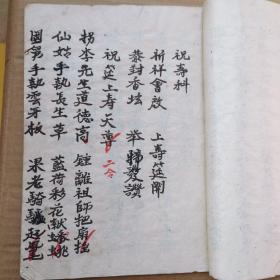 祝壽科
祈祥會啟 上壽筵開
恭對香坛 举 發讚
祝筵上壽天尊 二合
拐李先生道德高 鍾離祖師把扇搖
仙姑手執長生草 藍荷彩花献蟠桃
國舅手執雲牙板 果老騎驢